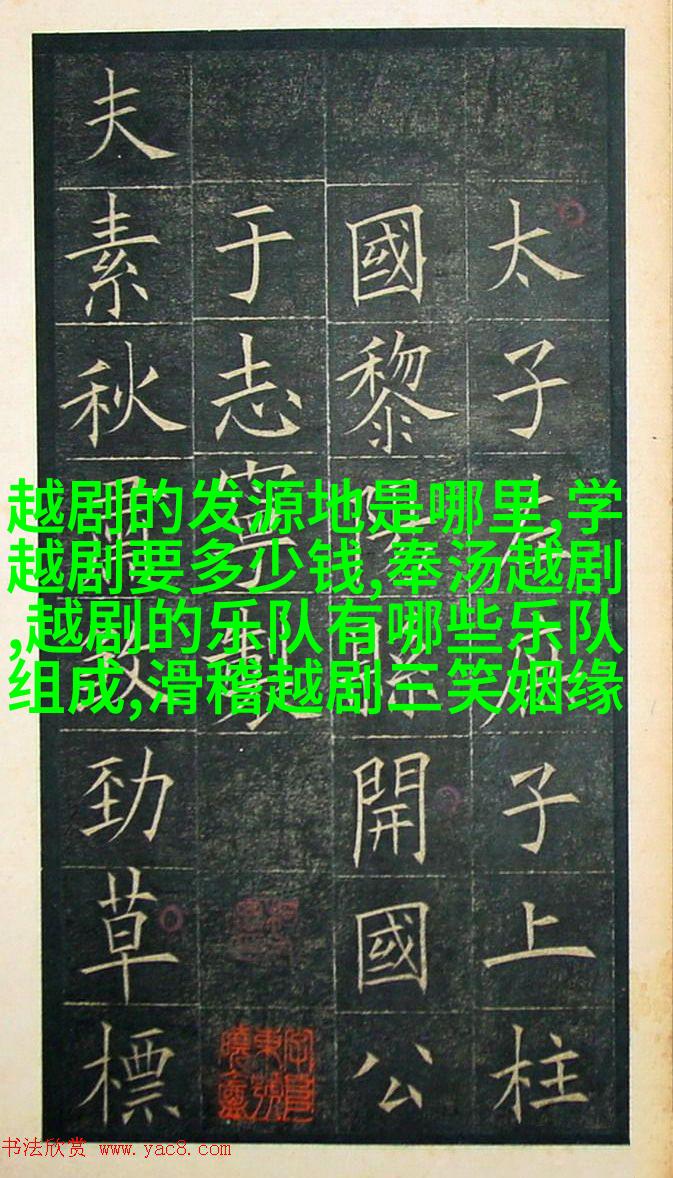 太子左子上柱
國黎開國公
于志寧製
夫素秋殺勁草標
越剧的发源地是哪里,学
越剧要多少钱,奉汤越剧
,越剧的乐队有哪些乐队
组成,滑稽越剧三笑姻缘
书法欣赏 www.yac8.com